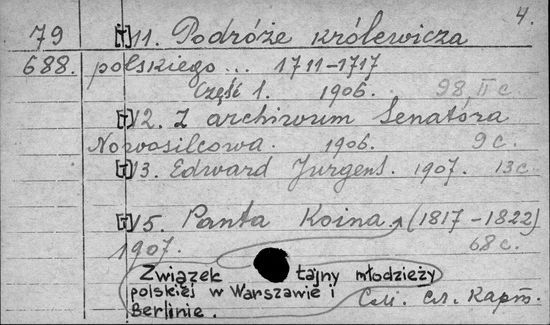 4.
79 [T] 11. Podróże królewicza
688. polskiego... 1711-1717
Część 1. 1906. 98 II c.
[T] 12. Z archiwum Senatóra
Nowosilcowa. 1906. 9 c.
[T] 13. Edward Jurgens. 1907. 13 c.
[T] 15. Panta Koina. (1817-1822)
1907. 68 c.
Związek tajny młodzieży
polskiej w Warszawie i
Berlinie.
См. сл. карт.